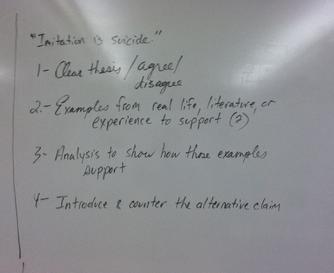 "Imitation is suicide."
1- Clear thesis / agree /
disagree
2.- Examples from real life, literature, or
experience to support (2)
3- Analysis to show how these examples
support
4- Introduce & counter the alternative claim